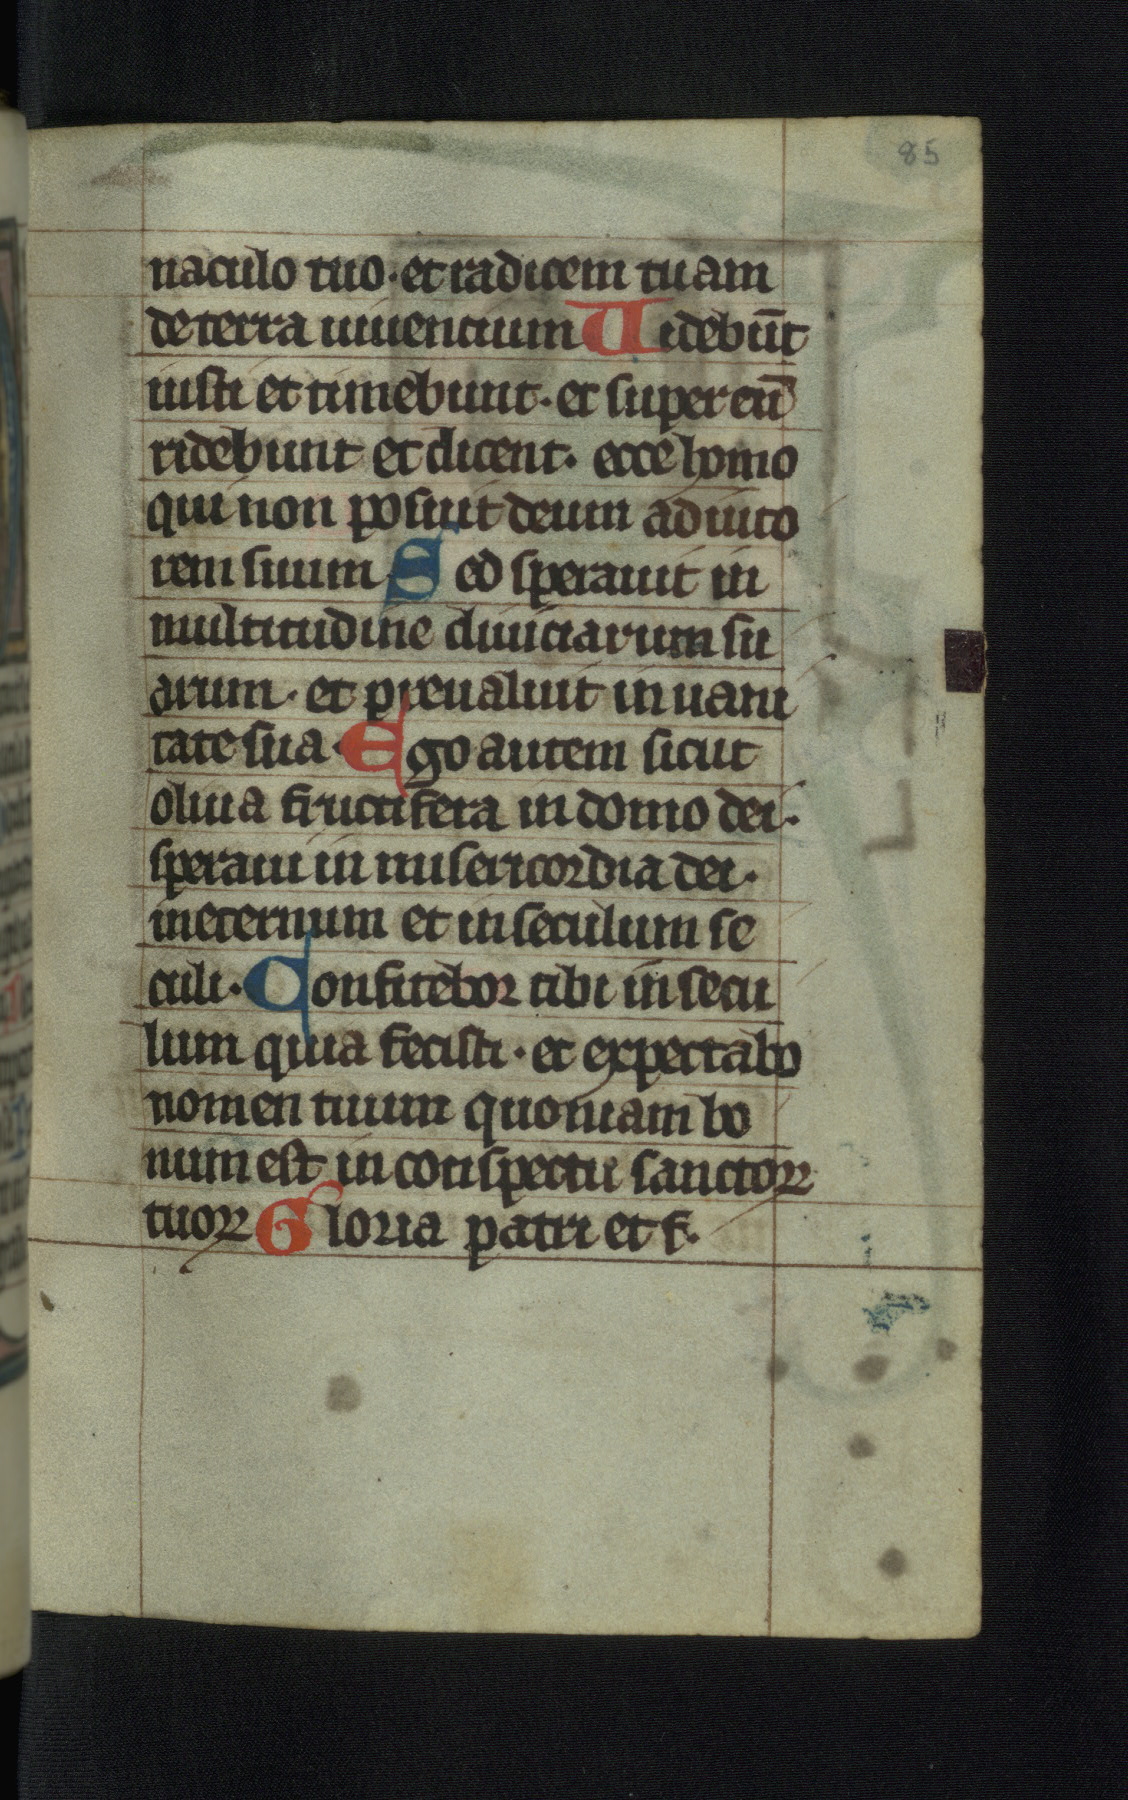 85
naculo tuo · et radicem tuam
de terra uiuentium Uidebūt
iusti et timebunt · et super eū
ridebunt et dicent · ecce homo
qui non posuit deum adiuto
rem suum Sed sperauit in
multitudine diuiciarum su
arum · et preualuit in uani
tate sua · Ego autem sicut
oliua fructifera in domo dei ·
speraui in misericordia dei ·
in eternum et in seculum se
culi · Confitebor tibi in secu
lum quia fecisti · et expectabo
nomen tuum quoniam bo
num est in conspectu sanctoꝝ
tuoꝝ Gloria patri et f ·